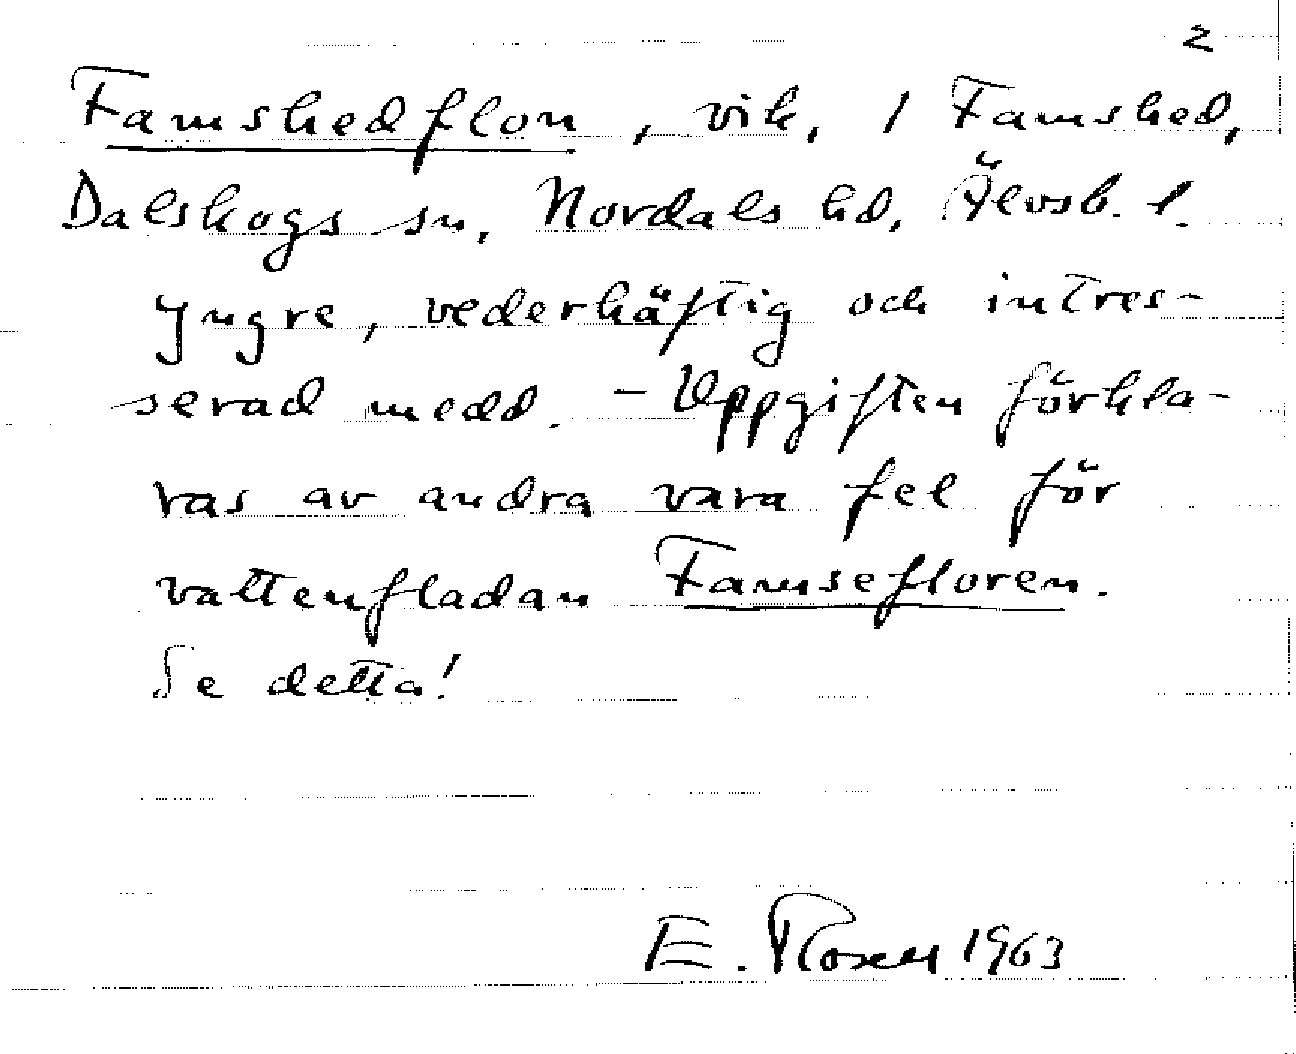 2
Famshedflon, vik, 1 Famshed,
Dalskogs sn, Nordals hd, Älvsb. l.
Yngre, vederhäftig och intres-
serad medd. – Uppgiften förkla-
ras av andra vara fel för
vattenfladan Famsefloren.
Se detta!
E. Rosell 1963